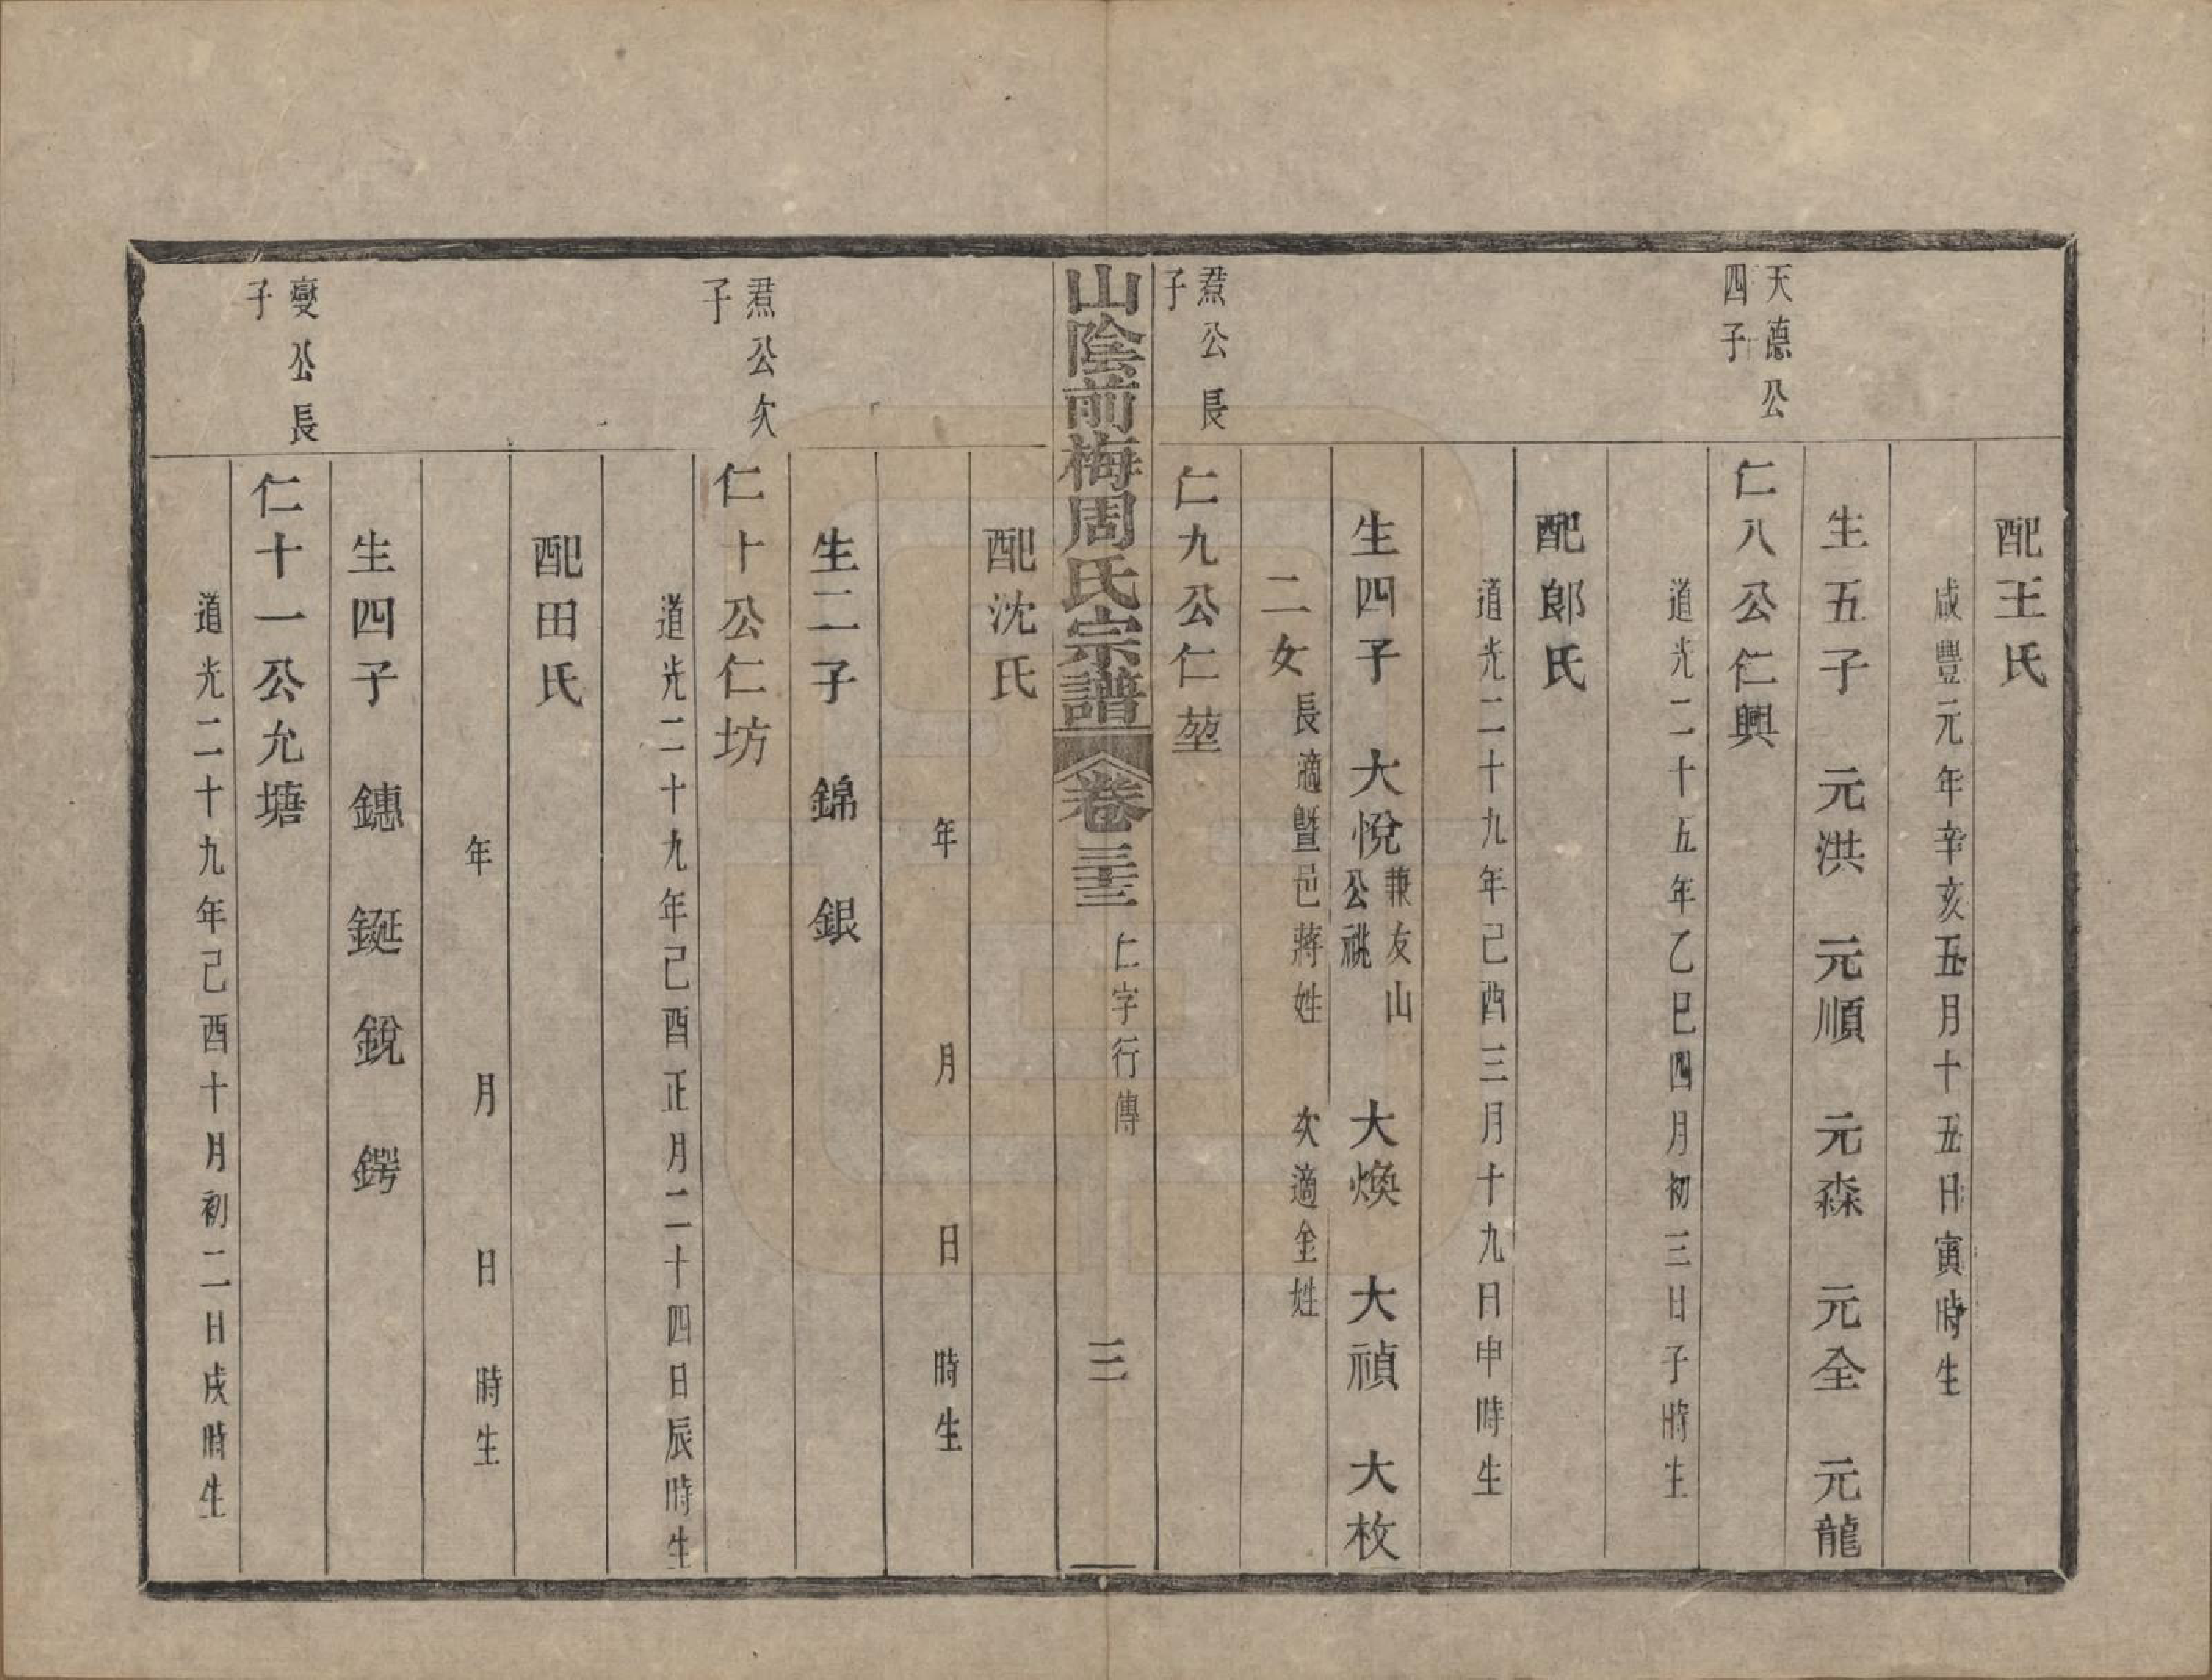 配王氏
咸豐元年辛亥五月十五日寅時生
生五子 元洪 元順 元森 元全 元龍
天德公四子
仁八公仁興
道光二十五年乙巳四月初三日子時生
配郎氏
道光二十九年己酉三月十九日申時生
生四子 大悅兼友山公祧 大煥 大禎 大枚
二女長適曁邑蔣姓 次適金姓
焄公長子
仁九公仁堃
山陰前梅周氏宗譜 卷三十三 仁字行傳 三
配沈氏
年 月 日 時生
生二子 錦 銀
焄公次子
仁十公仁坊
道光二十九年己酉正月二十四日辰時生
配田氏
年 月 日 時生
生四子 鏸 鋋 銳 鍔
燮公長子
仁十一公允塘
道光二十九年己酉十月初二日戌時生